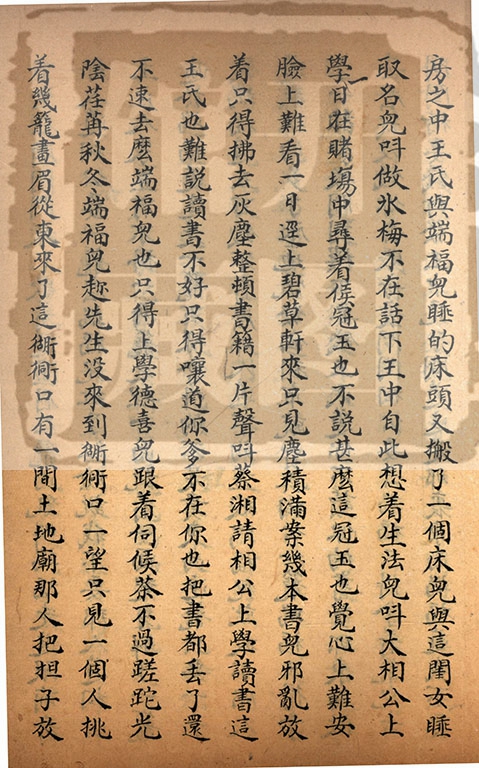 房之中王氏與端福兒睡的床頭又搬了一個床兒與這閨女睡
取名兒呌做氷梅不在話下王中自此想着生法兒呌大相公上
學一日在賭塲中尋着候冠玉也不説甚麽這冠玉也覺心上難安
臉上難看一日逕上碧草軒來只見塵積滿案幾本書兒邪亂放
着只得拂去灰塵整頓書籍一片聲呌蔡湘請相公上學讀書這
王氏也難説讀書不好只得嚷道你爹不在你也把書都丢了還
不速去麽端福兒也只得上學德喜兒跟着伺候茶不過蹉跎光
陰荏苒秋冬端福兒趂先生没來到衚衕口一望只見一個人挑
着幾籠畫眉從東來了這衚衕口有一間土地廟那人把担子放